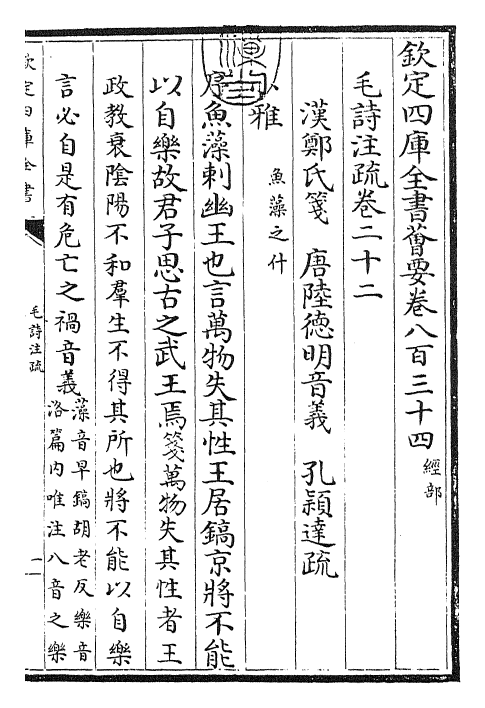 欽定四庫全書薈要卷八百三十四 經部
毛詩注疏卷二十二
漢鄭氏箋 唐陸德明音義 孔穎達疏
小雅 魚藻之什
序魚藻刺幽王也言萬物失其性王居鎬京將不能
以自樂故君子思古之武王焉箋萬物失其性者王
政教衰陰陽不和羣生不得其所也將不能以自樂
言必自是有危亡之禍音義藻音早鎬胡老反樂音
洛篇内唯注八音之樂
欽定四庫全書
毛詩注疏
一